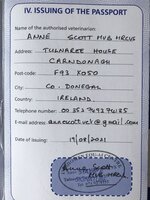 IV. ISSUING OF THE PASSPORT
Name of the authorised veterinarian:
ANNE SCOTT MVB MRCVS
Address: TULNAREE HOUSE
CARNDONAGH
Post-code: F93 X050
City: CO. DONEGAL
Country: IRELAND
Telephone number: 00 353 749374285
E-mail address: annescott.vet@gmail.com
Date of issuing: 19/08/2021
Anne Scott
MVB MRCVS